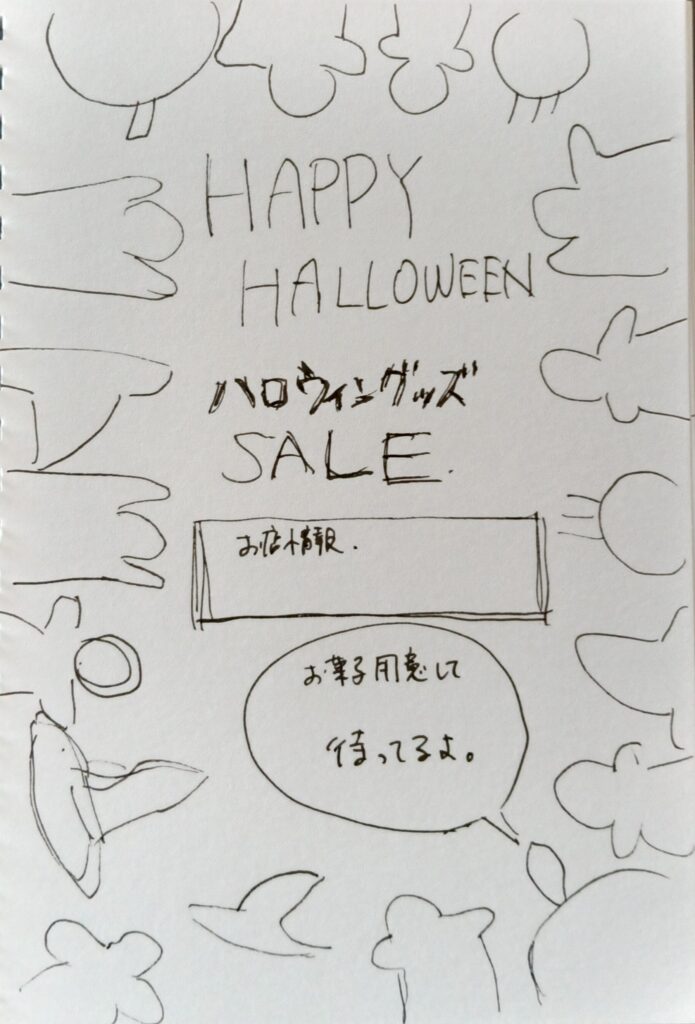 HAPPY
HALLOWEEN
ハロウィングッズ
SALE.
お店情報.
お菓子用意して
待ってるよ。